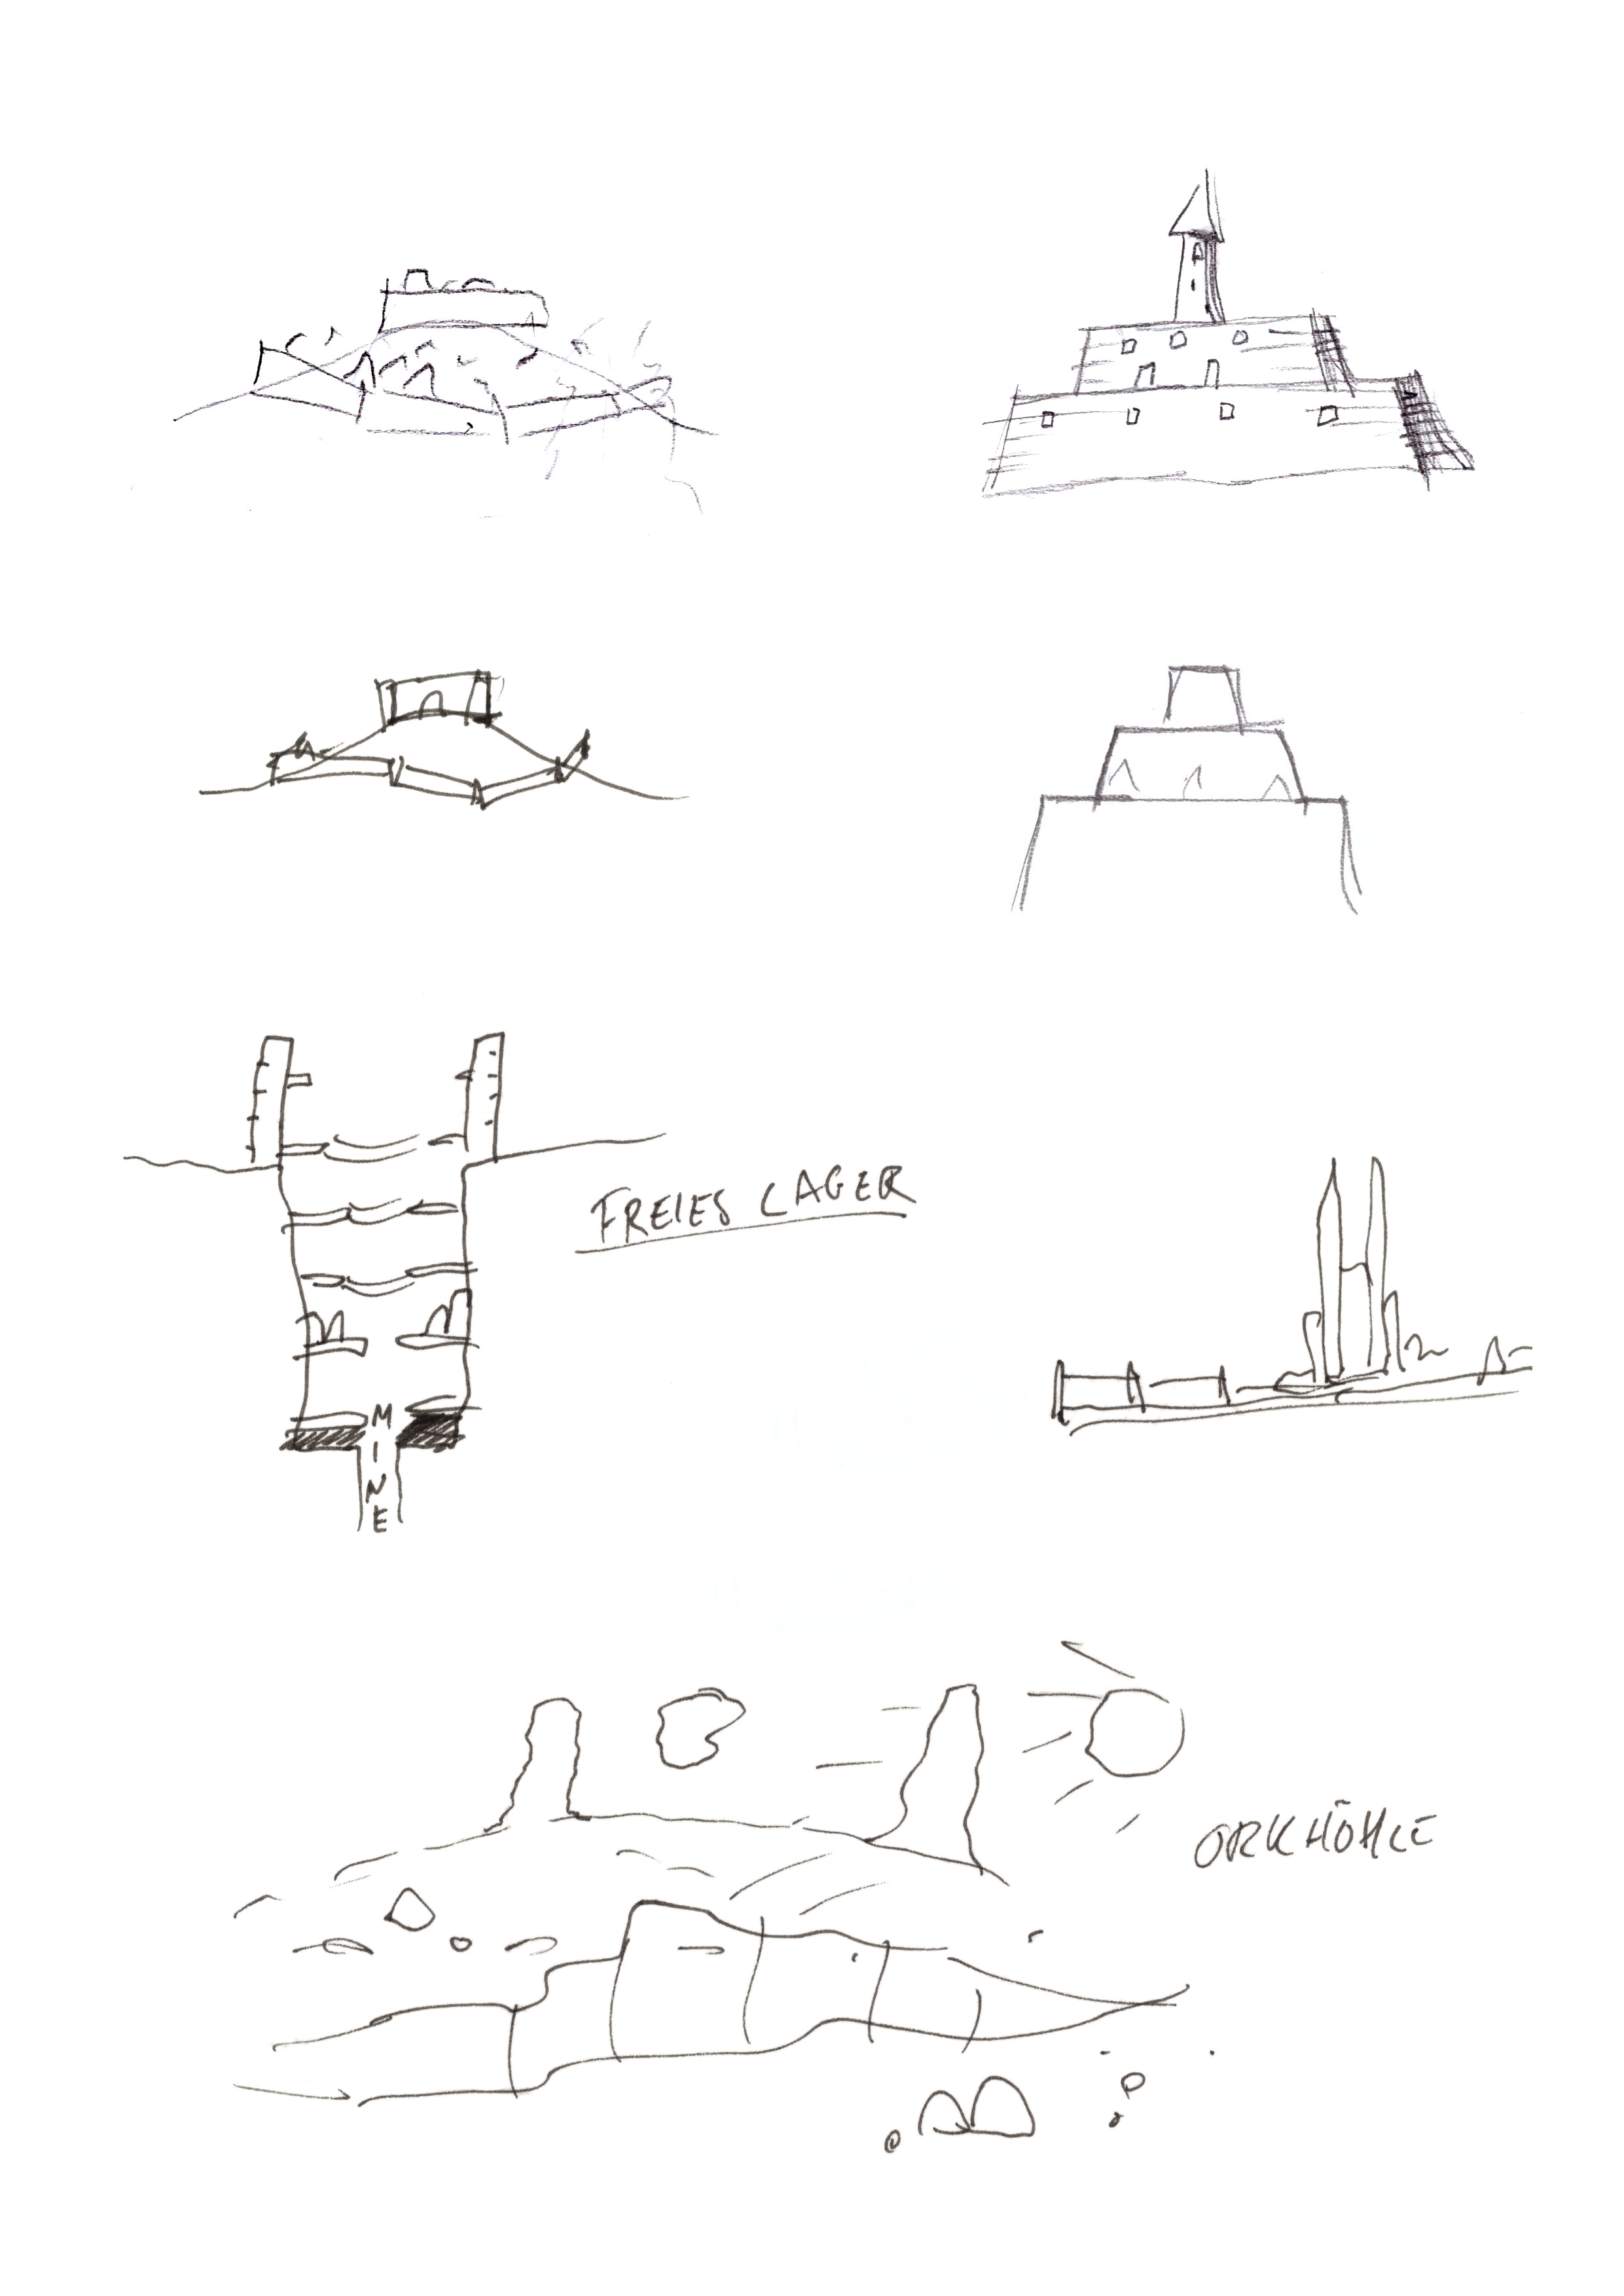 FREIES LAGER
MINE
ORKHÖHLE